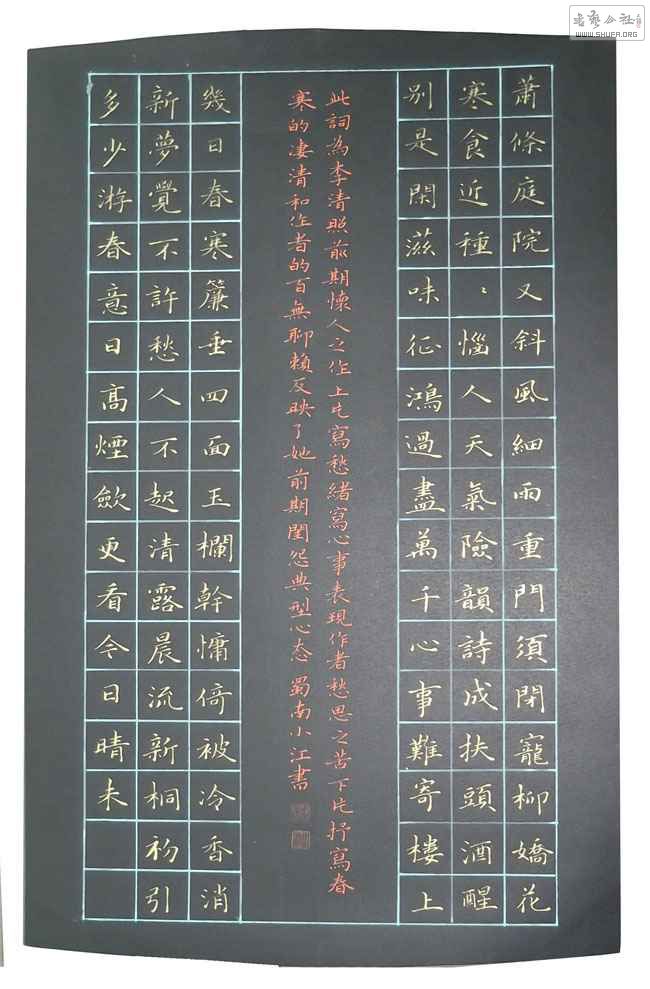 蕭條庭院又斜風細雨重門須閉寵柳嬌花
寒食近種〻惱人天氣險韻詩成扶頭酒醒
別是閑滋味征鴻過盡萬千心事難寄樓上
此詞為李清照前期懷人之作上片寫愁緒寫心事表現作者愁思之苦下片抒寫春
寒的凄清和作者的百無聊賴反映了她前期閨怨典型心态 蜀南小江書
幾日春寒簾垂四面玉欄幹慵倚被冷香消
新夢覺不許愁人不起清露晨流新桐初引
多少游春意日高煙斂更看今日晴未
書藝公社
WWW.SHUFA.ORG